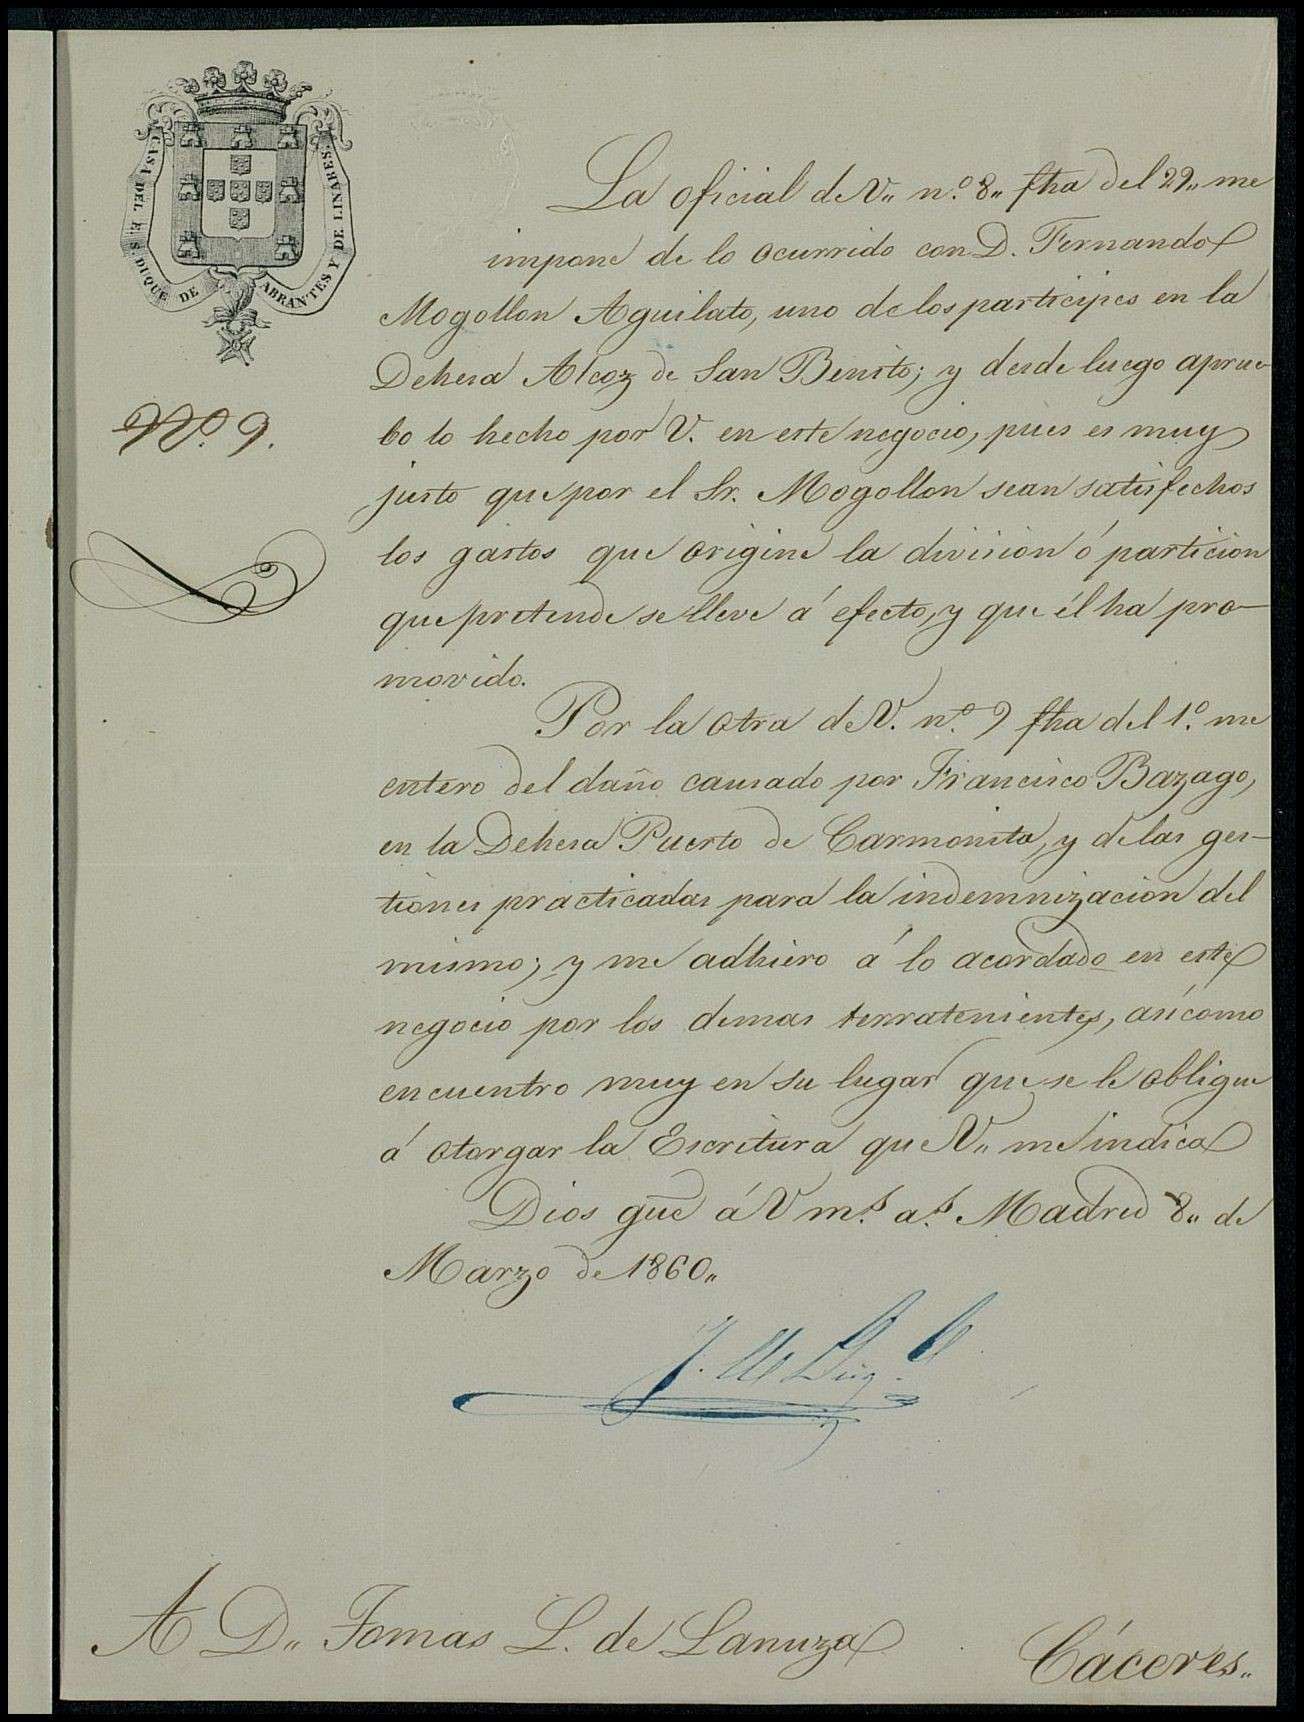 CASA DEL E. S. DUQUE DE ABRANTES Y DE LINARES.
Nº. 9.
La oficial de V.. n.º 8.. fha del 29.. me
impone de lo ocurrido con D. Fernando
Mogollon Aguilato, uno de los participes en la
Dehesa Alcoz de San Benito; y desde luego aprue-
bo lo hecho por V. en este negocio, pues es muy
justo que por el Sr. Mogollon sean satisfechos
los gastos que origine la division ó particion
que pretende se lleve á efecto, y que él ha pro-
movido.
Por la otra de V. n.º 9 fha del 1.º me
entero del daño causado por Francisco Bazago,
en la Dehesa Puerto de Carmonita, y de las ges-
tiones practicadas para la indemnizacion del
mismo; y me adhiero á lo acordado en este
negocio por los demas terratenientes, asi como
encuentro muy en su lugar que se le obligue
á otorgar la Escritura que V.. me indica
Dios gue á V m.s a.s Madrid 8.. de
Marzo de 1860..
A D.. Tomas L. de Lanuza
Cáceres..